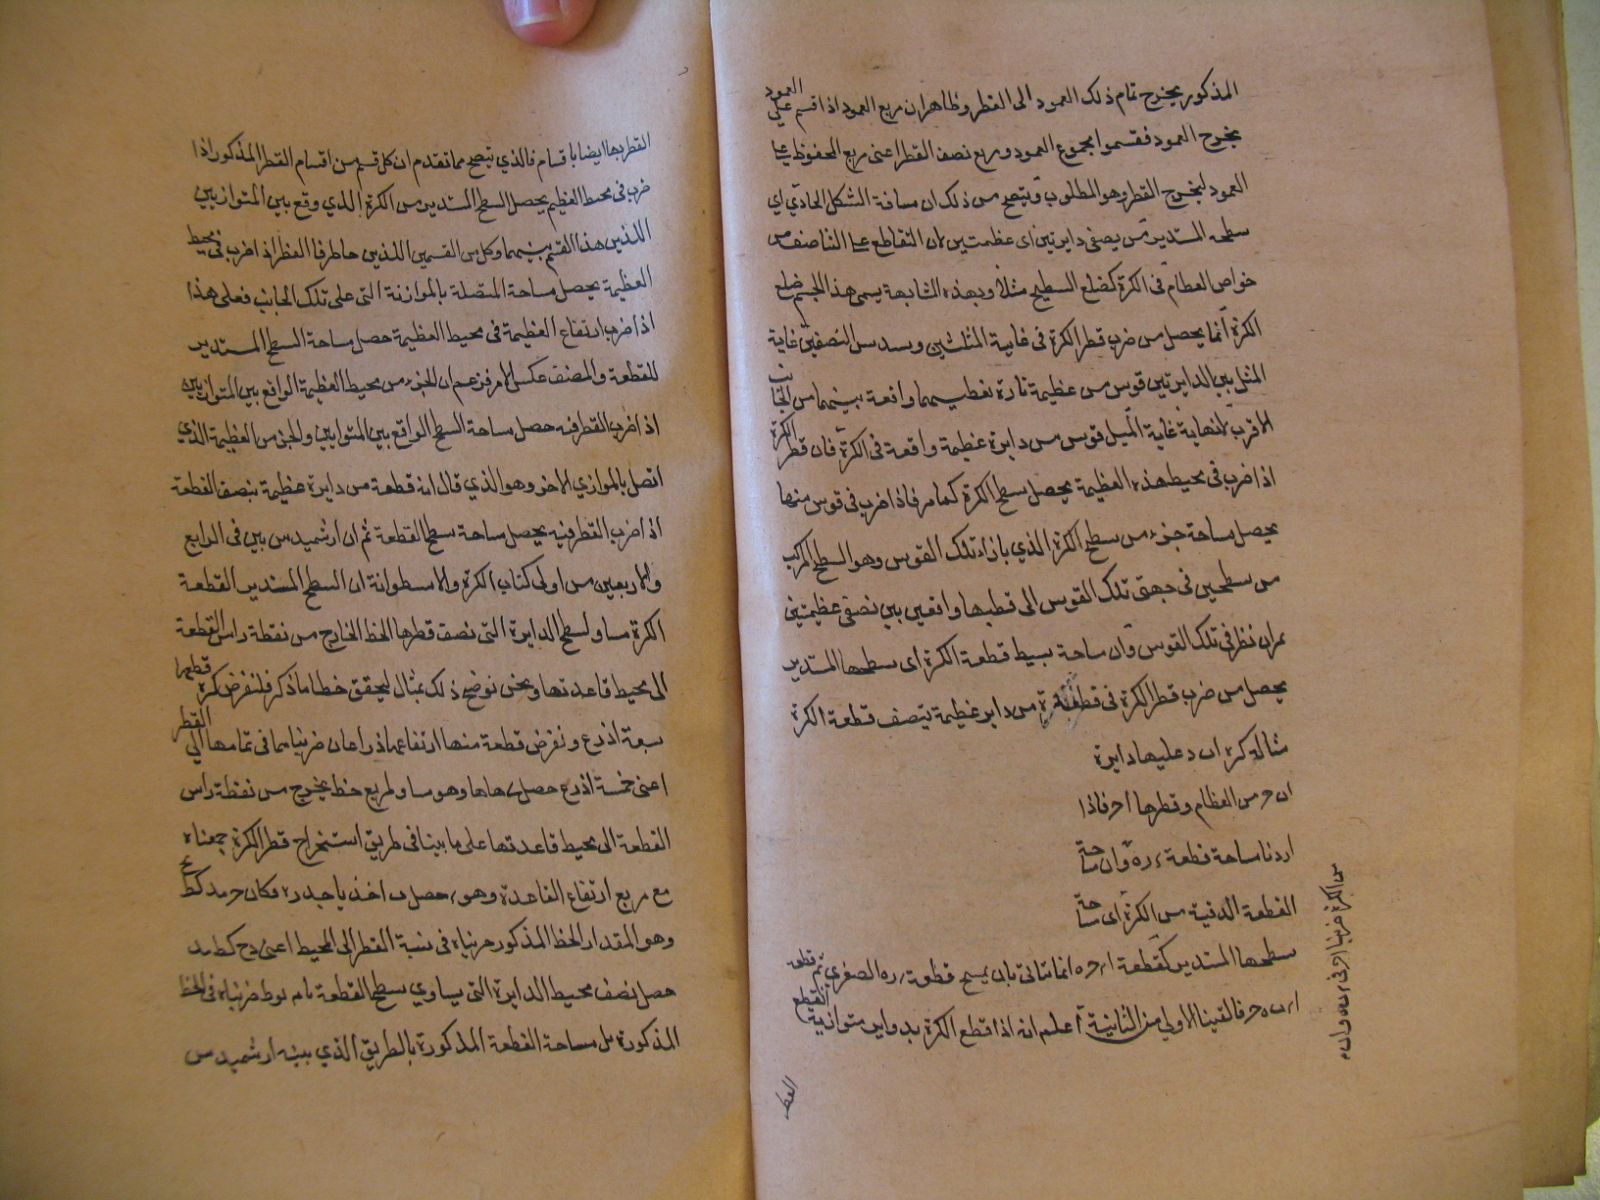 المذكور يخرج تمام ذلك العمود الى القطر وظاهر ان مربع العمود اذا قسم على العمود
يخرج العمود فقسموا مجموع العمود ومربع نصف القطر اعنى مربع المحفوظ على
العمود ليخرج القطر وهو المطلوب ويتضح من ذلك ان مسافة الشكل الحادي اى
سطحه المستدير من نصفى دايرتين اى عظمتين لان التقاطع على التناصف من
خواص العظام فى الكرة كضلع البطيخ مثلا وبهذه المشابهة يسمى هذا الجسم ضلع
الكرة انما يحصل من ضرب قطر الكرة فى غاية الميل بين النصفين غاية
الميل بين الدايرتين قوس من عظيمة مارة بقطبيهما واقعة بينهما من الجانب
الاقرب لانهاية غاية الميل قوس من دايرة عظيمة واقعة فى الكرة فان قطر الكرة
اذا ضرب فى محيط هذه العظيمة يحصل سطح الكرة كما مر فاذا ضرب فى قوس منها
يحصل مساحة جزء من سطح الكرة الذي بازاء تلك القوس وهو السطح المركب
من سطحين فى جهتى تلك القوس الى قطبها واقعين بين نصفى عظيمتين
يمران بطرفى تلك القوس وان ساحة بسيط قطعة الكرة اى سطحها المستدير
يحصل من ضرب قطر الكرة فى قطعة من داير عظيمة تنصف قطعة الكرة
مثاله كرة ا ب د عليها دايرة
ا ب ح من العظام وقطرها ا ح فاذا
اردنا مساحة قطعة ء ره وان ساحة
القطعة الدنية من الكرة اى ساحة
سطحها المستدير كقطعة انما تتاتى بان يمسح قطعة ره الصغرى ثم قطعة
فالقينا الاولى من الثانية اعلم انه اذا قطع الكرة بدواير متوازية القطع
القطر
القطر بها ايضا باقسام فالذي يتضح مما تقدم ان كل قسم من اقسام القطر المذكور اذا
ضرب فى محيط العظيم يحصل السطح المستدير من الكرة الذي وقع بين المتوازيين
اللذين هذا القسم بينهما وكل من القسمين اللذين حاطرفا القطر اذا ضرب فى محيط
العظيمة يحصل مساحة المتصلة بالموازنة التى على تلك الجانب فعلى هذا
اذا ضرب ارتفاع العظيمة فى محيط العظيمة حصل مساحة السطح المستدير
للقطعة والمصنف عكس الامر فزعم ان الجزء من محيط العظيمة الواقع بين المتوازيين
اذا ضرب القطر فيه حصل ساحة السطح الواقع بين المتوازيين والجزء من العظيمة الذي
اتصل بالموازي الاخر وهو الذي قال انه قطعة من دايرة عظيمة بنصف القطعة
اذا ضرب القطر فيه يحصل ساحة سطح القطعة ثم ان ارشميدس بين فى الرابع
والاربعين من اولى كتاب الكرة والاسطوانة ان السطح المستدير القطعة
الكرة مساو لسطح الدايرة التى نصف قطرها الخط الخارج من نقطة راس القطعة
الى محيط قاعدتها ونحن نوضح ذلك بمثال ليحقق خطا ما ذكر فلنفرض كرة قطرها
سبعة اذرع ونفرض قطعة منها ارتفاعها ذراعان ضربناهما فى تمامها الى القطر
اعنى خمسة اذرع حصل وهو مساو لمربع خط يخرج من نقطة راس
القطعة الى محيط قاعدتها على ما بينا فى طريق استخراج قطر الكرة جمعناه
مع مربع ارتفاع القاعدة وهو حصل اخذنا جذره فكان
وهو المقدار الخط المذكور ضربناه فى نسبة القطر الى المحيط اعنى
حصل نصف محيط الدايرة التى يساوي سطح القطعة ضربناه فى الخط
المذكورة مساحة القطعة المذكورة بالطريق الذي بينه ارشميدس